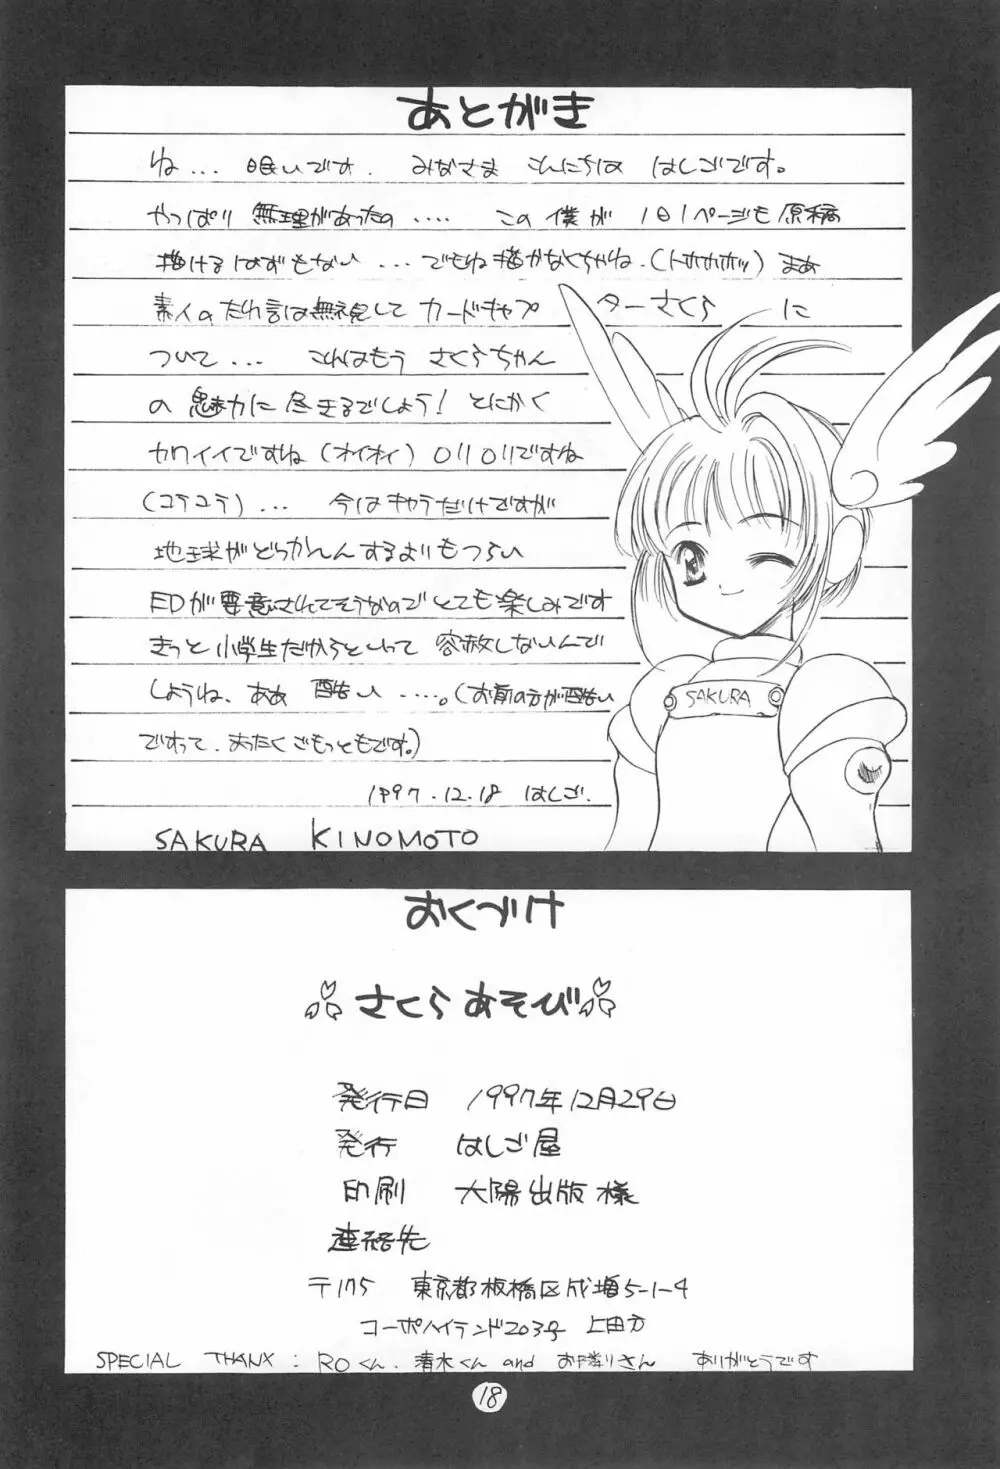 あとがき
ね... 眠いです. みなさま こんにちは はしごです。
やっぱり 無理があったの .... この僕が 1日1ページも原稿
描けるはずもない ... でもね描かなくちゃね.(トホホホッ) まあ
素人のたれ言は無視して カードキャプターさくら に
ついて... これはもう さくらちゃん
の 魅力に 尽きるでしょう! とにかく
カワイイですね(オイオイ) ロリロリですね
(コラコラ)... 今はキャラだけですが
地球がどっかんんするよりもつらい
EDが要意されてそうなのでとても楽しみです
きっと小学生だからといって 容赦しないんで
しょうね、ああ 酷い .....。(お前の方が酷い
ですって、まったくごもっともです。)
1997.12.18 はしご.
SAKURA KINOMOTO
SAKURA
おくづけ
さくらあそび
発行日 1997年12月29日
発行 はしご屋
印刷 大陽出版様
連絡先
〒175 東京都板橋区成増5-1-4
コーポハイランド203号 上田方
SPECIAL THANX : ROくん. 清水くん and お隣りさん ありがとうです
18